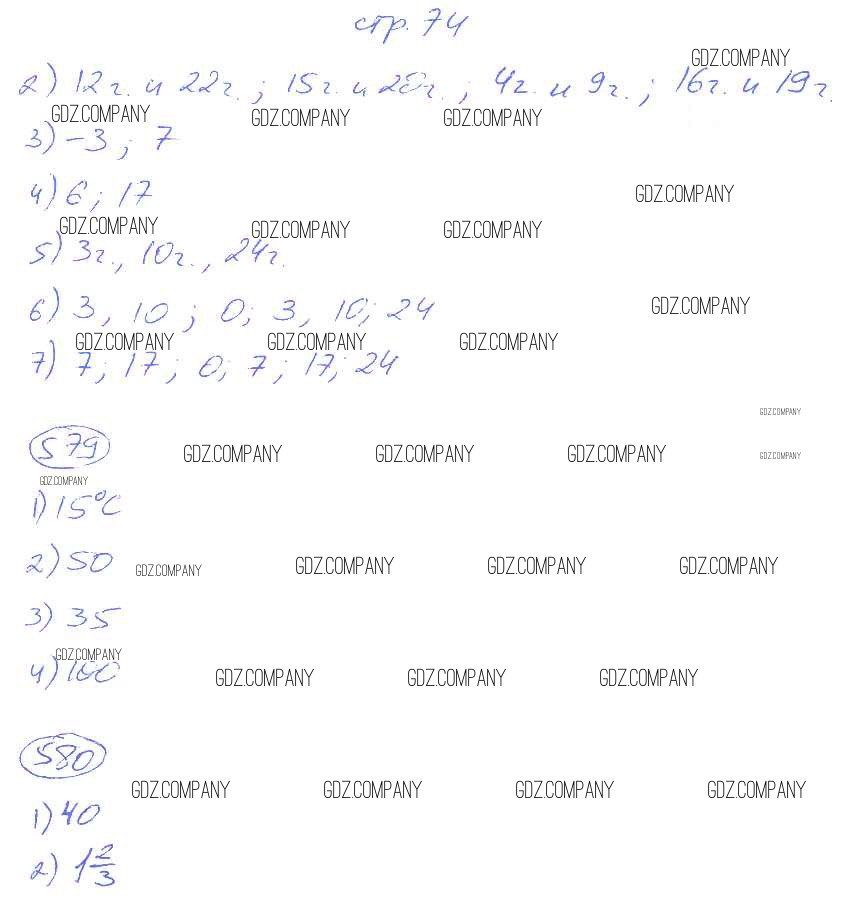 стр. 74
GDZ.COMPANY
2) 12 г. и 22 г. ; 15 г. и 20 г. ; 4 г. и 9 г. ; 16 г. и 19 г.
GDZ.COMPANY GDZ.COMPANY GDZ.COMPANY
3) -3 ; 7
4) 6 ; 17 GDZ.COMPANY
GDZ.COMPANY GDZ.COMPANY GDZ.COMPANY
5) 3 г., 10 г., 24 г.
6) 3, 10 ; 0; 3, 10; 24 GDZ.COMPANY
GDZ.COMPANY GDZ.COMPANY GDZ.COMPANY
7) 7 ; 17 ; 0; 7 ; 17; 24
GDZ.COMPANY
579 GDZ.COMPANY GDZ.COMPANY GDZ.COMPANY GDZ.COMPANY
GDZ.COMPANY
1) 15°C
2) 50 GDZ.COMPANY GDZ.COMPANY GDZ.COMPANY GDZ.COMPANY
3) 35
GDZ.COMPANY
4) 100 GDZ.COMPANY GDZ.COMPANY GDZ.COMPANY
580
GDZ.COMPANY GDZ.COMPANY GDZ.COMPANY GDZ.COMPANY
1) 40
2) 1 2/3